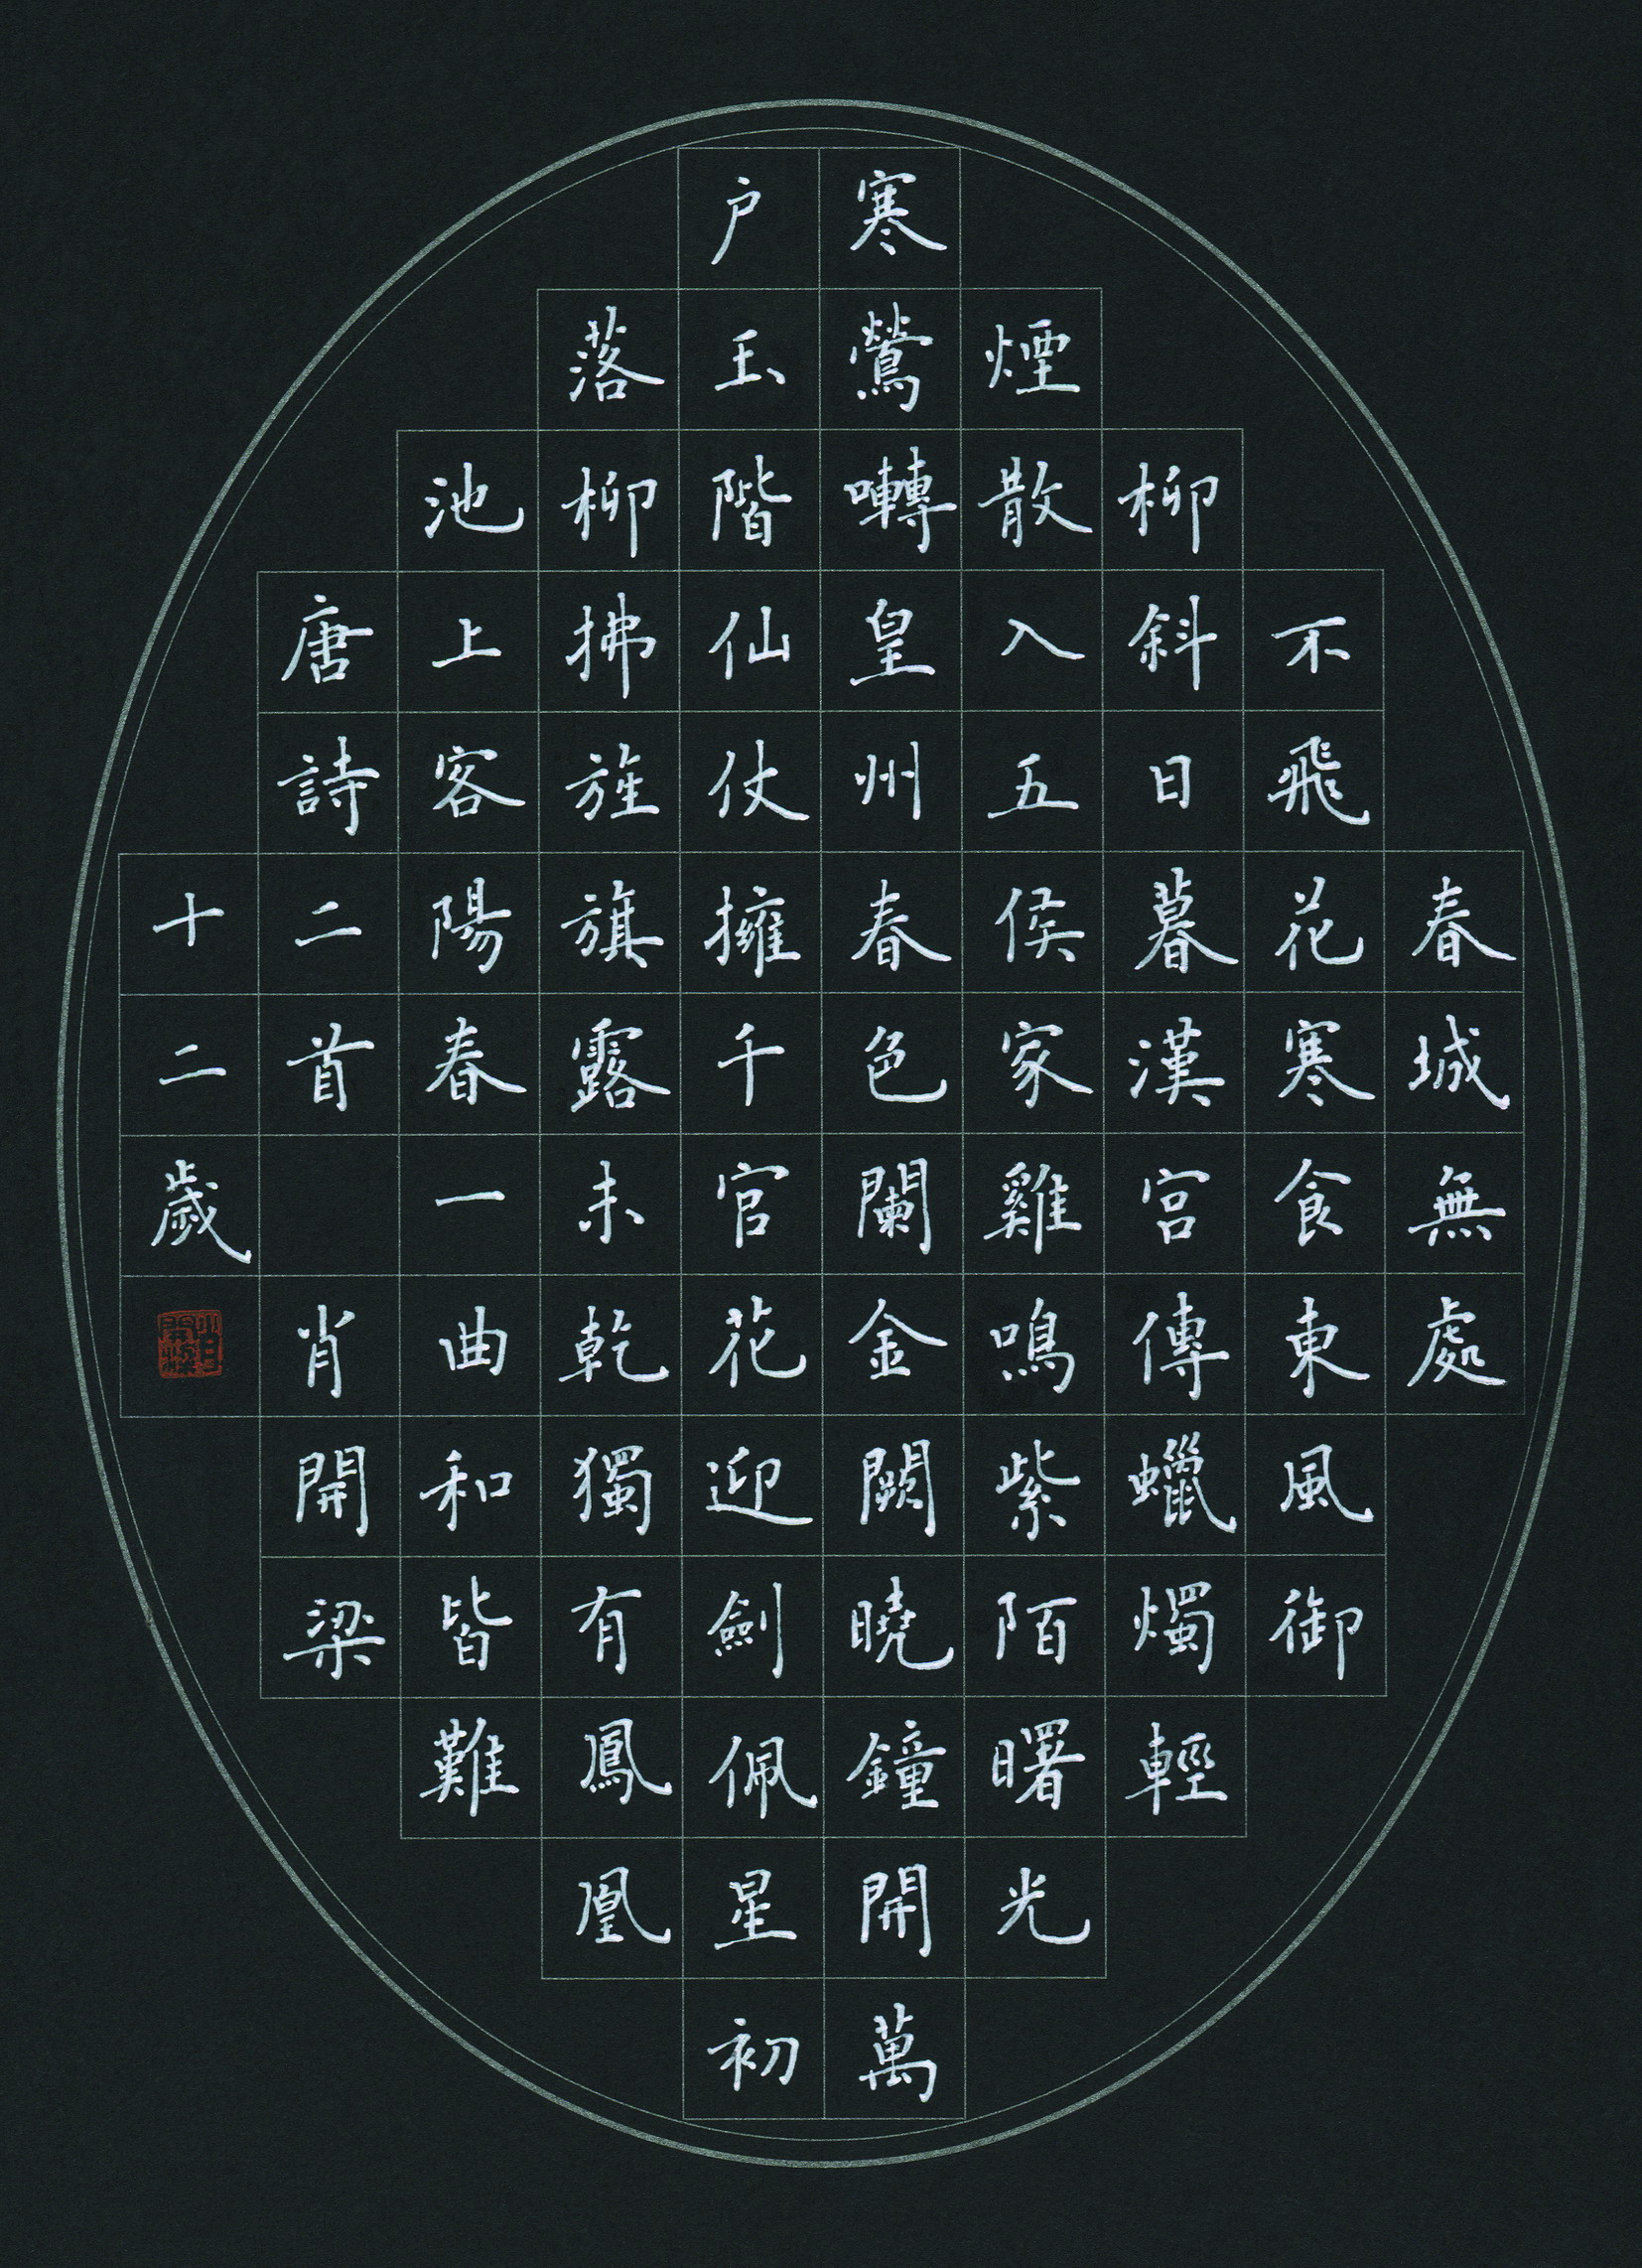 春城無處
不飛花寒食東風御
柳斜日暮漢宫傳蠟燭輕
煙散入五侯家雞鳴紫陌曙光
寒鶯囀皇州春色闌金闕曉鐘開萬
户玉階仙仗擁千官花迎劍佩星初
落柳拂旌旗露未乾獨有鳳凰
池上客陽春一曲和皆難
唐詩二首 肖開梁
十二歲
肖開梁